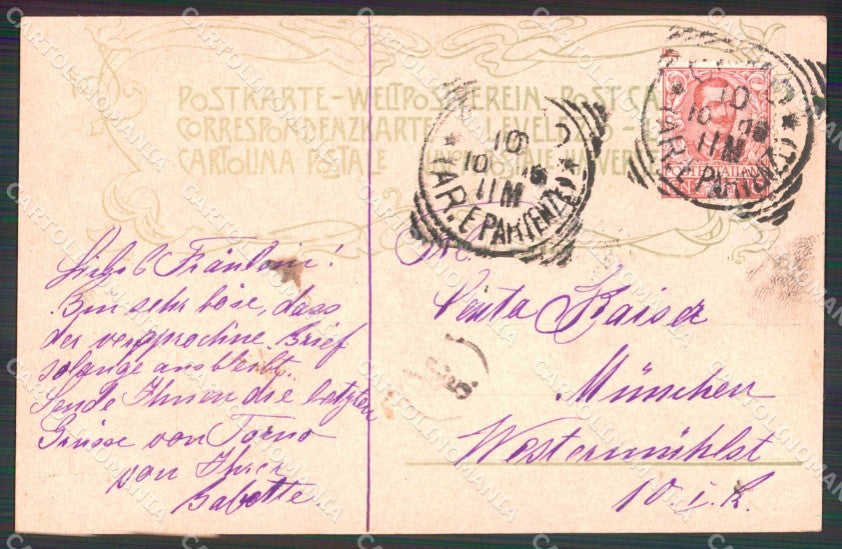 POSTKARTE – WELTPOSTVEREIN. POST CA
CORRESPONDENZKARTE LEVELEZ
CARTOLINA POSTALE UNION POSTALE UNIVER
10
10
11 M
(AR. E PARTENZE)
10
10
11 M
(AR. E PARTENZE)
Liebes Fräulein!
Bin sehr böse, dass
der versprochne Brief
solange ausbleibt.
Sende Ihnen die letzten
Grüsse von Torno
von Ihrer
Babette
Kaiser
München
Westermühlst
10. I. R.
CARTOLINOMANIA